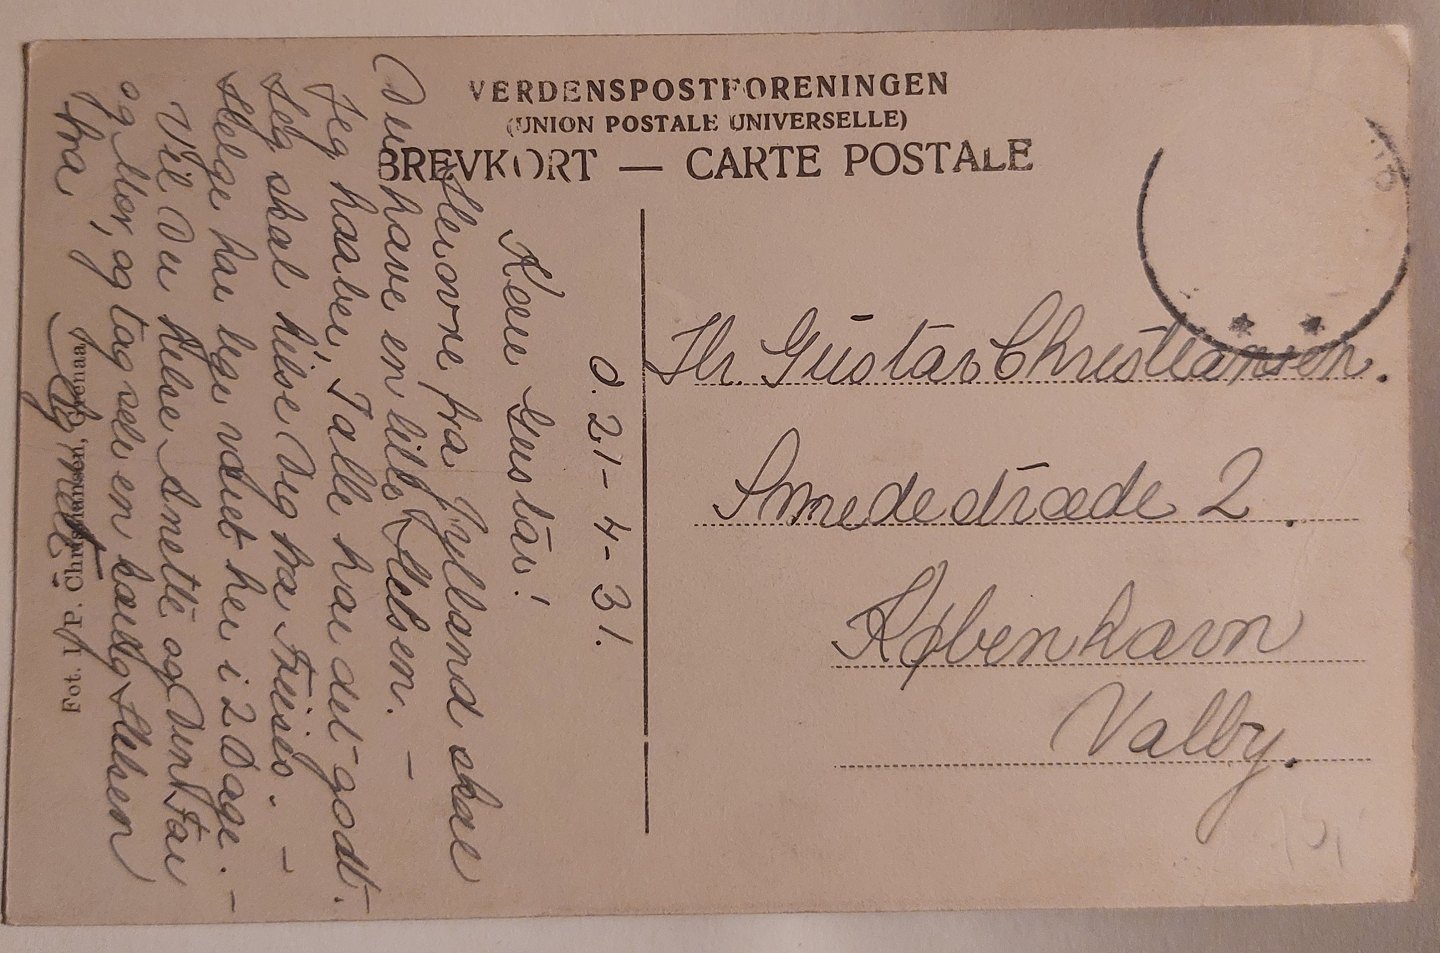 VERDENSPOSTFORENINGEN
(UNION POSTALE UNIVERSELLE)
BREVKORT — CARTE POSTALE
D. 21-4-31.
Kære Gustav!
Herovre fra Jylland skal
Du have en lille Hilsen. —
Jeg haaber, I alle har det godt.
Jeg skal hilse Dig fra —
Helge har lige været her i 2 Dage. —
Vil Du hilse Anette og Din Far
og Mor, og tag selv en kærlig Hilsen
fra
Fot. I. P. Christiansen, Grenaa
Hr. Gustav Christiansen.
Smedestræde 2.
København
Valby.